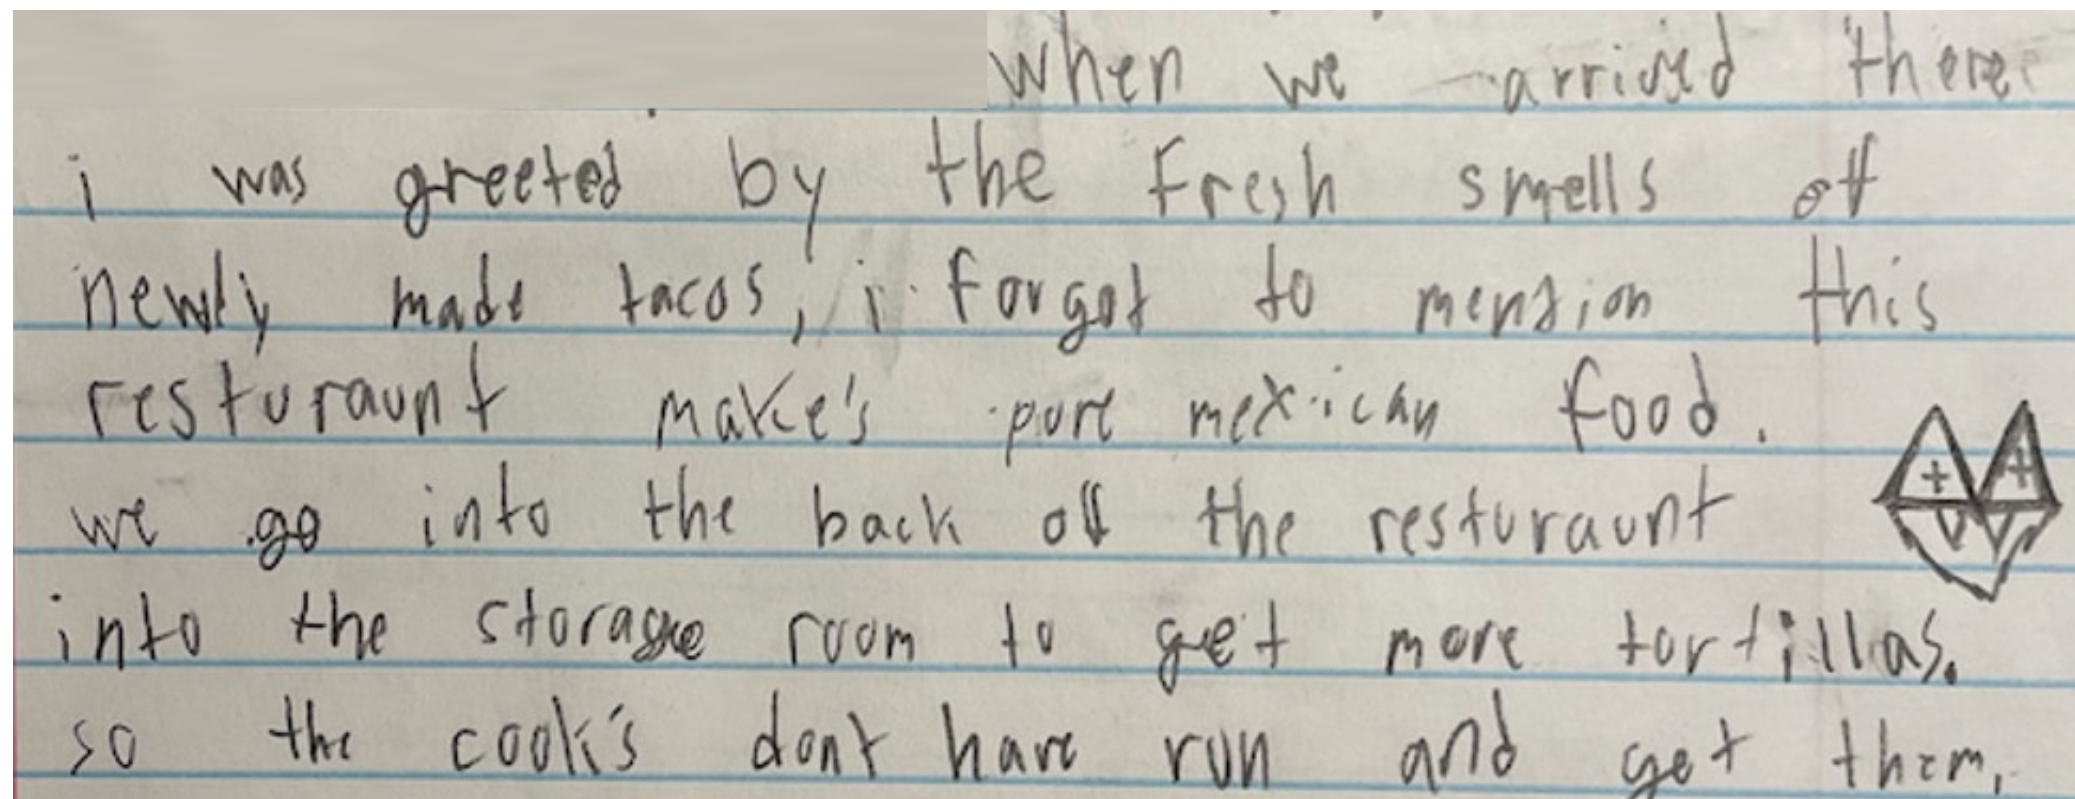 when we arrived there
i was greeted by the fresh smells of
newly made tacos, i forgot to mention this
resturaunt make's pure mexican food.
we go into the back of the resturaunt
into the storage room to get more tortillas.
so the cook's dont have run and get them,